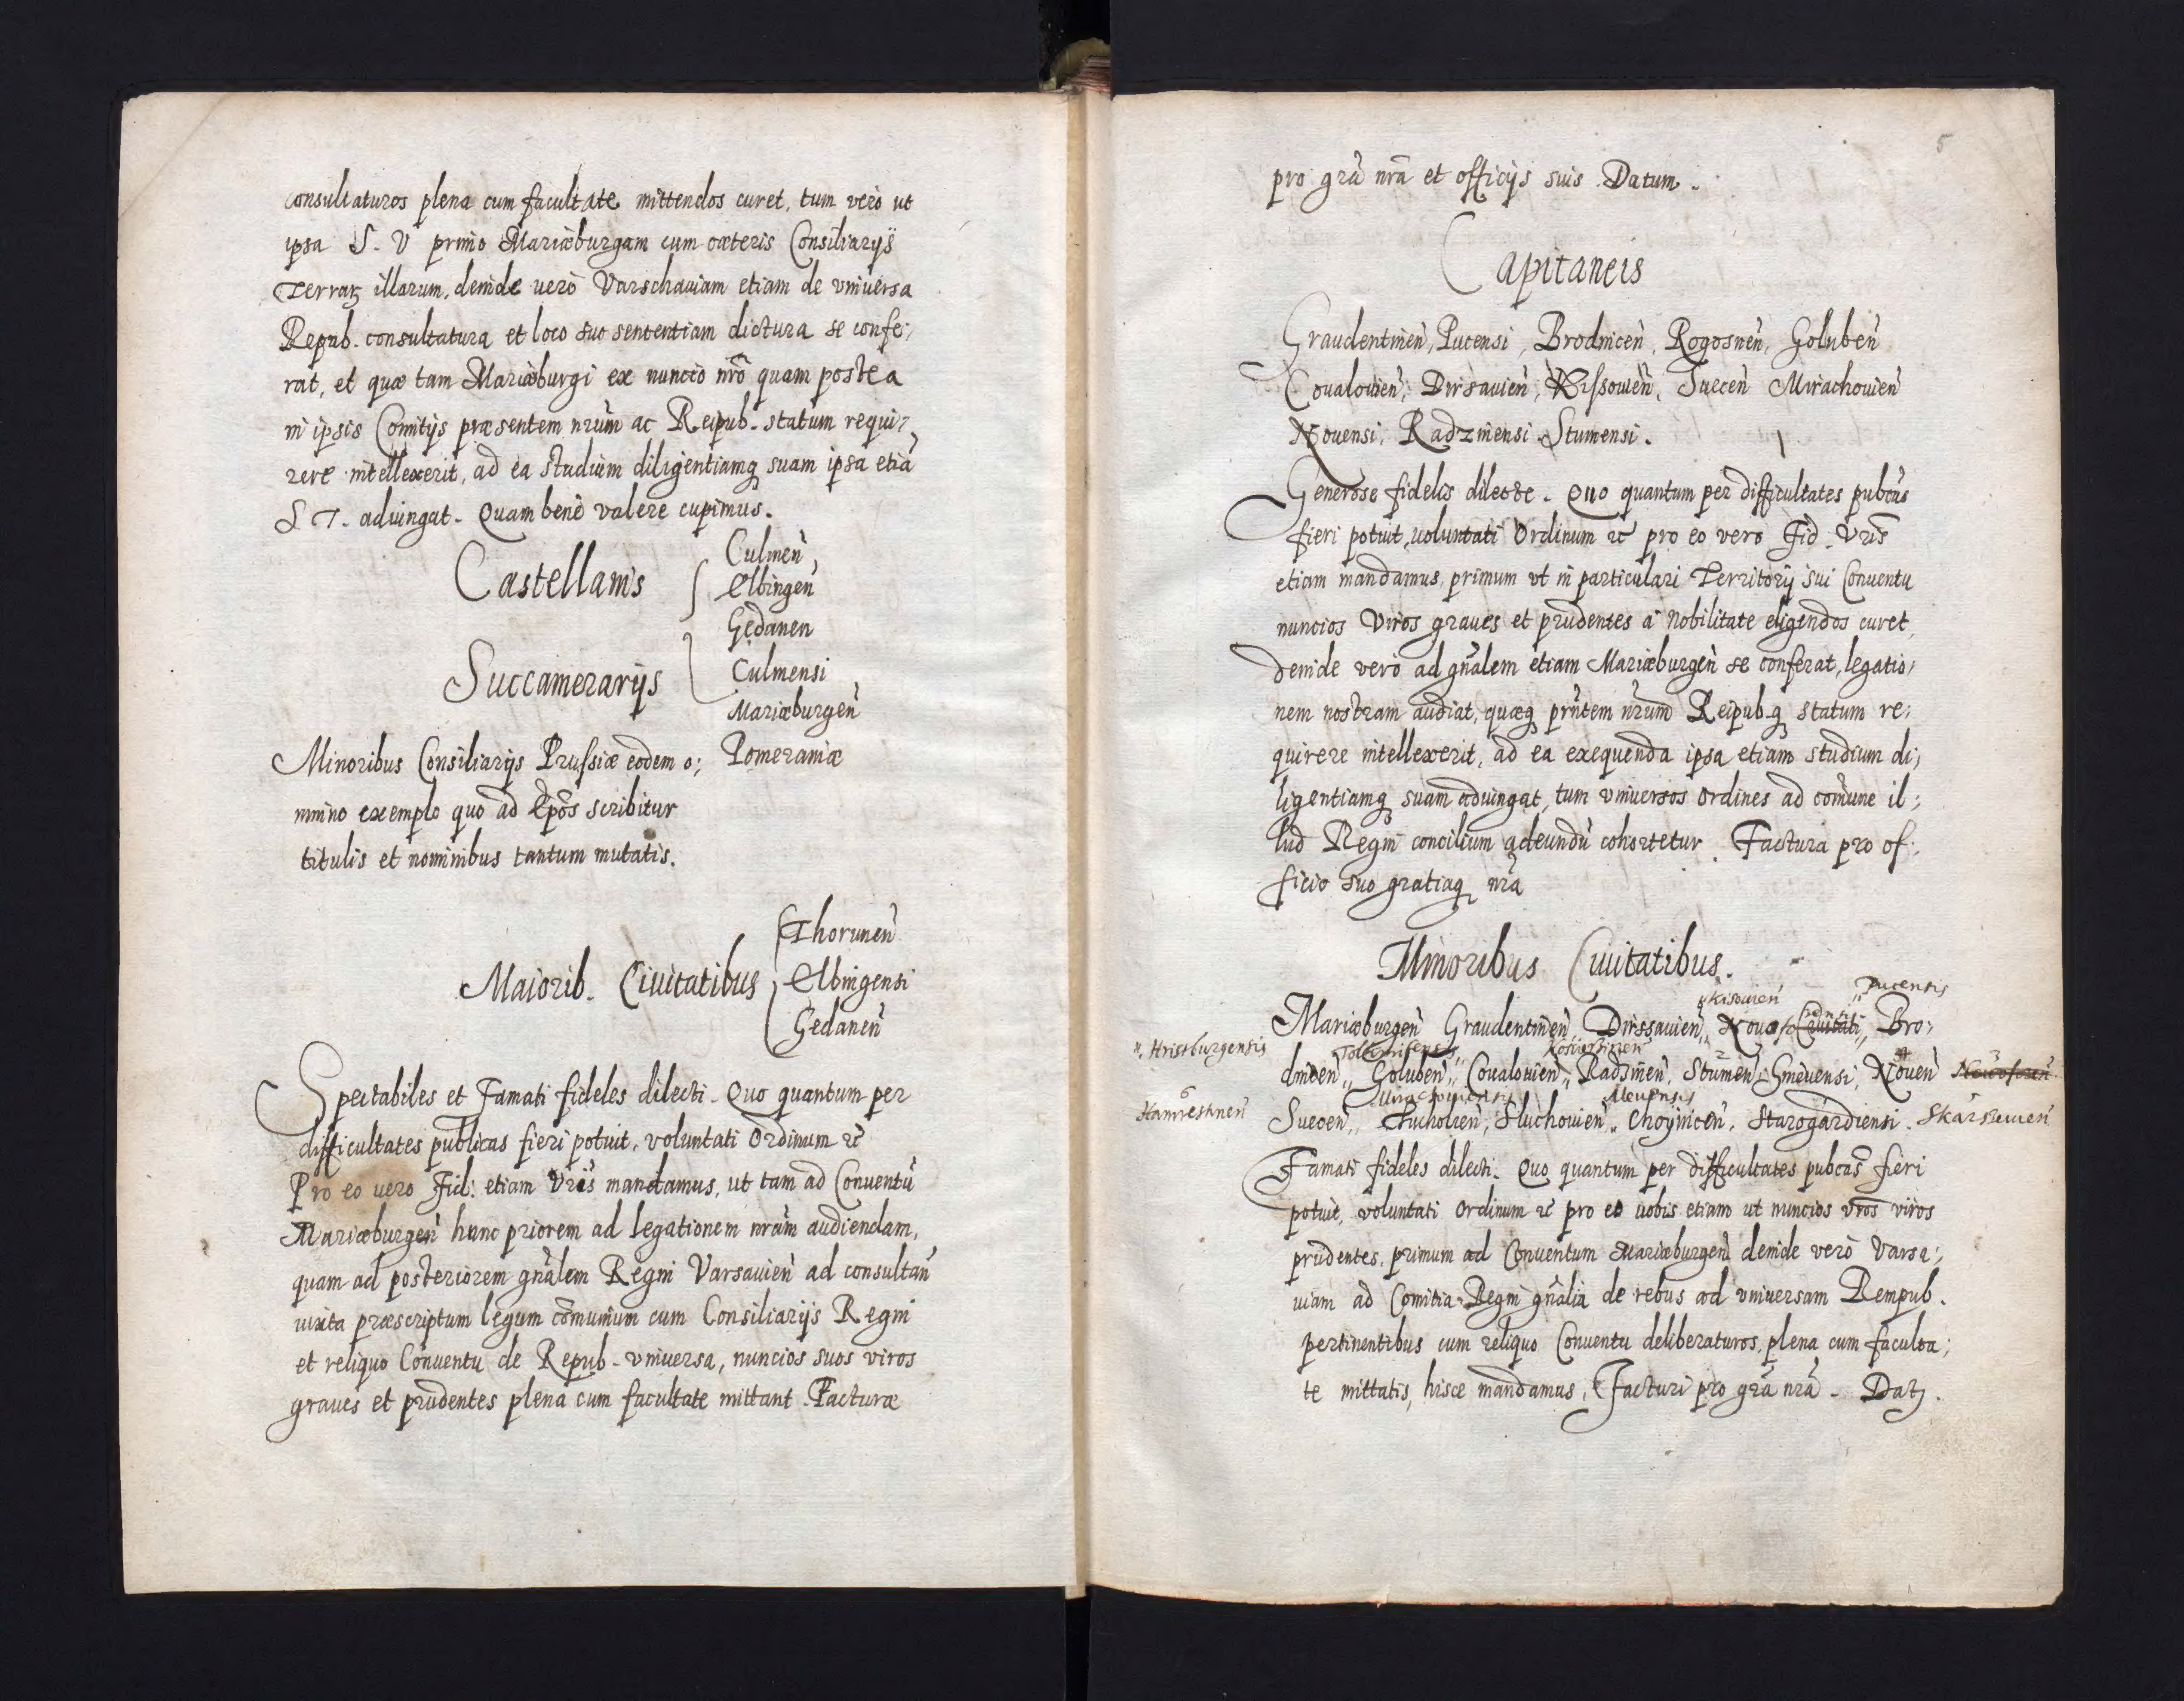 consultaturos plena cum facultate mittendos curet, tum verò ut
ipsa S. V primo Mariæburgam cum cæteris Consiliarijs
Terraꝝ illarum, deinde uerò Varschauiam etiam de vniuersa
Repub. consultatura et loco suo sententiam dictura se confe;
rat, et quæ tam Mariæburgi ex nuncio nr̃o quam postea
in ipsis Comitijs præsentem nr̃um ac Reipub. statum requi;
rere intellexerit, ad ea studium diligentiamq suam ipsa etiã
S T. adiungat. Quam bene valere cupimus.
Castellanis
Culmen̄
Elbingen̄
Gedanen
Succamerarijs
Culmensi
Mariæburgen̄
Pomeraniæ
Minoribus Consiliarijs Prussiæ eodem o;
mnino exemplo quo ad Ep̃os scribitur
titulis et nominibus tantum mutatis.
Maiorib. Ciuitatibus
Thorunen̄
Elbingensi
Gedanen̄
Spectabiles et Famati fideles dilecti. Quo quantum per
difficultates publicas fieri potuit, voluntati Ordinum ꝛc̃
Pro eo uero Fid: etiam Vr̃is mandamus, ut tam ad Conuentũ
Mariæburgen̄ hunc priorem ad legationem nr̃am audiendam,
quam ad posteriorem gn̄alem Regni Varsauien̄ ad consultan̄
iuxta præscriptum legum com̃unium cum Consiliarijs Regni
et reliquo Conuentu de Repub. vniuersa, nuncios suos viros
graues et prudentes plena cum facultate mittant. Facturæ
5
pro gr̃a nr̃a et officijs suis. Datum.
Capitaneis
Graudentinen̄, Pucensi, Brodnicen̄, Rogosnen̄, Goluben̄
Coualouien̄, Dirsauien̄, Kissouien̄, Suecen̄ Mirachouien̄
Nouensi, Radzinensi Stumensi.
Generose fidelis dilecte. Quo quantum per difficultates pubcas
fieri potuit, uoluntati Ordinum ꝛc̃ pro eo vero Fid. Vr̃is
etiam mandamus, primum vt in particulari Territorij sui Conuentu
nuncios Viros graues et prudentes a Nobilitate eligendos curet,
deinde verò ad gn̄alem etiam Mariæburgen̄ se conferat, legatio;
nem nostram audiat, quæq pr̃ntem nr̃um Reipub.q statum re;
quirere intellexerit, ad ea exequenda ipsa etiam studium di;
ligentiamq suam adiungat, tum vniuersos Ordines ad com̃une il;
lud Regni concilium adeundũ cohortetur. Factura pro of;
ficio suo gratiaq nr̃a
Minoribus Ciuitatibus.
Kisouien̄ Pucensis
Mariæburgen̄ Graudentinen̄, Dirssauien̄, Nouæ Ciuitati, Bro;
Hristburgensis
dnicen̄, Goluben̄, Coualouien̄, Radzinen̄, Stumen̄, Gmeuensi, Nouen̄
Mirachouiensis Meuensis
Suecen̄, Tucholien̄, Sluchouien̄, Choynicen̄, Starogardiensi. Skarssuien̄
Famati fideles dilecti. Quo quantum per difficultates pubcas fieri
potuit, voluntati Ordinum ꝛc̃ pro eo uobis etiam ut nuncios vr̃os viros
prudentes, primum ad Conuentum Mariæburgen̄ deinde verò Varsa;
uiam ad Comitia Regni gn̄alia de rebus ad vniuersam Rempub.
pertinentibus cum reliquo Conuentu deliberaturos, plena cum faculta;
te mittatis, hisce mandamus, Facturi pro gr̃a nr̃a. Datꝫ.